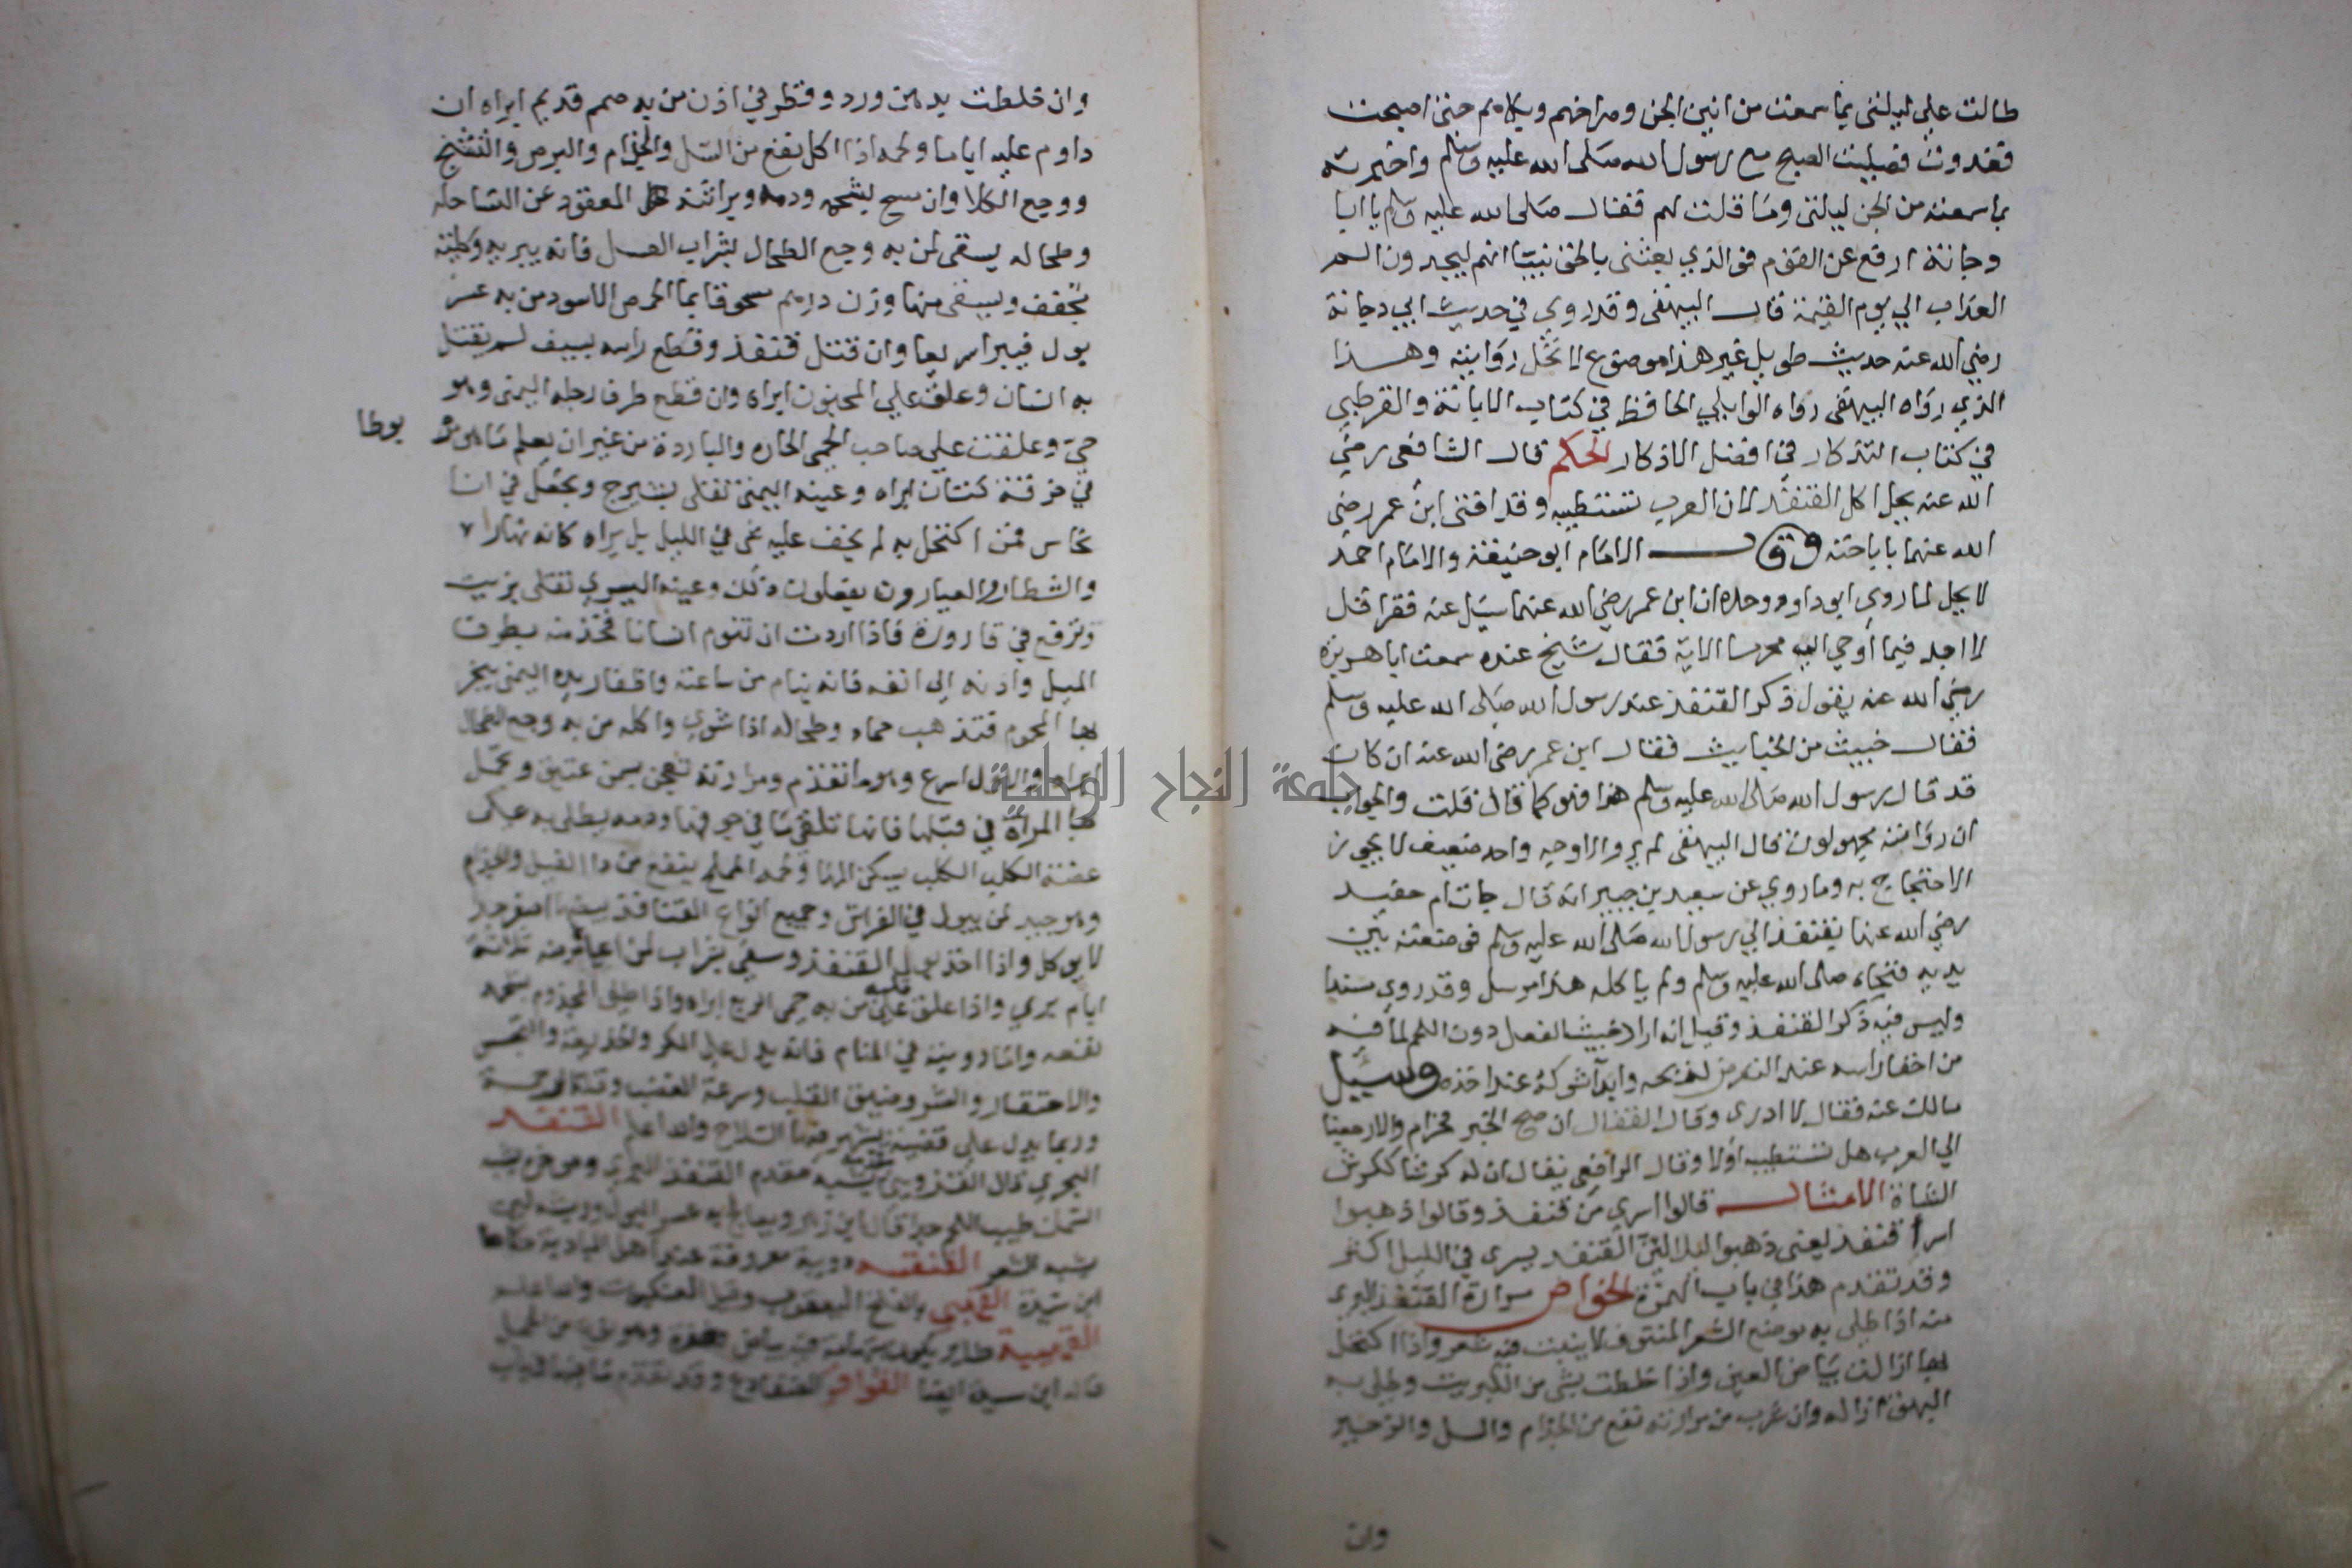 طالت علي ليلتي بما سمعت من انين الجن وصراخهم وبكاهم حتى اصبحت
فغدوت فصليت الصبح مع رسول الله صلى الله عليه وسلم واخبرته
بما سمعته من الجن ليلتي وما قلت لهم فقال صلى الله عليه وسلم يا ابا
دجانة ارفع عن القوم فو الذي بعثني بالحق نبيا انهم ليجدون الم
العذاب الي يوم القيمة قال البيهقي وقد روي في حديث ابي دجانة
رضي الله عنه حديث طويل غير هذا موضوع لا تحل روايته وهذا
الذي رواه البيهقي رواه الوايلي الحافظ في كتاب الابانة والقرطبي
في كتاب التذكار في افضل الاذكار الحكم قال الشافعي رضي
الله عنه يحل اكل القنفذ لان العرب تستطيبه وقد افتى ابن عمر رضي
الله عنهما باباحته وقال الامام ابو حنيفة والامام احمد
لا يحل لما روي ابو داود وحده ان ابن عمر رضي الله عنهما سيل عنه فقرا قل
لا اجد فيما أوحي اليه محرما الاية فقال شيخ عنده سمعت ابا هريرة
رضي الله عنه يقول ذكر القنفذ عند رسول الله صلى الله عليه وسلم
فقال خبيث من الخبايث فقال ابن عمر رضي الله عنه ان كان
قد قال رسول الله صلى الله عليه وسلم هذا فهو كما قال قلت والجواب
ان رواته مجهولون قال البيهقي لم يرو الا وجه واحد ضعيف لا يجوز
الاحتجاج به وما روي عن سعيد بن جبير انه قال جات ام حفيد
رضي الله عنها بقنفذ الي رسول الله صلى الله عليه وسلم فوضعته بين
يديه فنحاه صلى الله عليه وسلم ولم ياكله هذا مرسل وقد روي مسندا
وليس فيه ذكر القنفذ وقيل انه اراد خبيث الفعل دون اللحم لما فيه
من اخفا راسه عند التعرض لذبحه وابدا شوكه عند اخذه وسيل
مالك عنه فقال لا ادرى وقال القفال ان صح الخبر فحرام والا رجعنا
الي العرب هل تستطيبه أو لا وقال الرافعي يقال ان له كرشا ككرش
الشاة الامثال قالوا اسري من قنفذ وقالوا ذهبوا
اسرا قنفذ يعني ذهبوا ليلا لان القنفذ يسرى في الليل اكثر
وقد تقدم هذا في باب الهمزة الخواص مرارة القنفذ البرى
منه اذا طلى به موضع الشعر المنتوف لا ينبت فيه شعر واذا اكتحل
بها ازالت بياض العين واذا خلطت بشي من الكبريت وطلي به
البهق ازاله وان شرب من مرارته نفع من الجذام والسل والزحير
وان
وان خلطت بدهن ورد وقطر في اذن من به صمم قديم ابراه ان
داوم عليه اياما ولحمه اذا اكل نفع من السل والجذام والبرص والتشنج
ووجع الكلا وان مسح بشحمه ودمه وبراثنه حل المعقود عن النسا حله
وطحاله يسقى لمن به وجع الطحال بشراب العسل فانه يبريه وكليته
تجفف ويسقى منها وزن درهم مسحوقا بما الحمص الاسود من به عسر
بول فيبرا سريعا وان قتل قنفذ وقطع راسه بسيف لم يقتل
به انسان وعلق علي المجنون ابراه وان قطع طرف رجله اليمنى وهو
حي وعلقت على صاحب الحمى الحاره والباردة من غير ان يعلم ما هو مر
بوطا
في خرقة كتان ابراه وعينه اليمنى تغلى بشيرج وتجعل في انا
نحاس فمن اكتحل به لم يخف عليه شي في الليل بل يراه كانه نهارا
والشطار والعيارون يفعلون ذلك وعينه اليسرى تغلى بزيت
وترفع في قارورة فاذا اردت ان تنوم انسانا فخذ منه بطرف
الميل وادنه الى انفه فانه ينام من ساعته واظفار يده اليمنى يبخر
بها المحموم فتذهب حماه وطحاله اذا شوي واكله من به وجع الطحال
ابراه والاول اسرع وهو ما تقدم ومرارته تعجن بسمن عتيق وتحمل
بها المراة في قبلها فانها تلقي ما في جوفها ودمه يطلى به على
عضة الكلب الكلب يسكن المها ولحمه المملح ينفع من دا الفيل والجذام
وهو جيد لمن يبول في الفراش وجميع انواع القنافذ
لا يوكل واذا اخذ القنفذ وسقي بشراب لمن منه ثلاثة
ايام بري واذا علق قلبه علي من به حمى الربع ابراه واذا طلي المجذوم بشحمه
نفعه واما رويته في المنام فانه يدل علي المكر والخديعة والتجسس
والاحتقار والشر وضيق القلب وسرعة الغضب وقلة الرحمة
وربما يدل على فتنة يشهر فيها السلاح والله اعلم القنفذ
البحري قال القزويني يشبه مقدم القنفذ البري وموخره يشبه
السمك طيب اللحم جدا قال ابن زهر ويعالج به عسر البول وريشه لين
يشبه الشعر القنفشه دويبة معروفة عند اهل البادية حكاها
ابن سيدة القهبي بالفتح اليعقوب وقيل العنكبوت والله اعلم
طاير يكون بتهامة فيه بياض وخضرة وهو نوع من الحجل
قاله ابن سيده ايضا القوافر الضفادع وقد تقدم ما فيها في باب
جامعة النجاح الوطنية